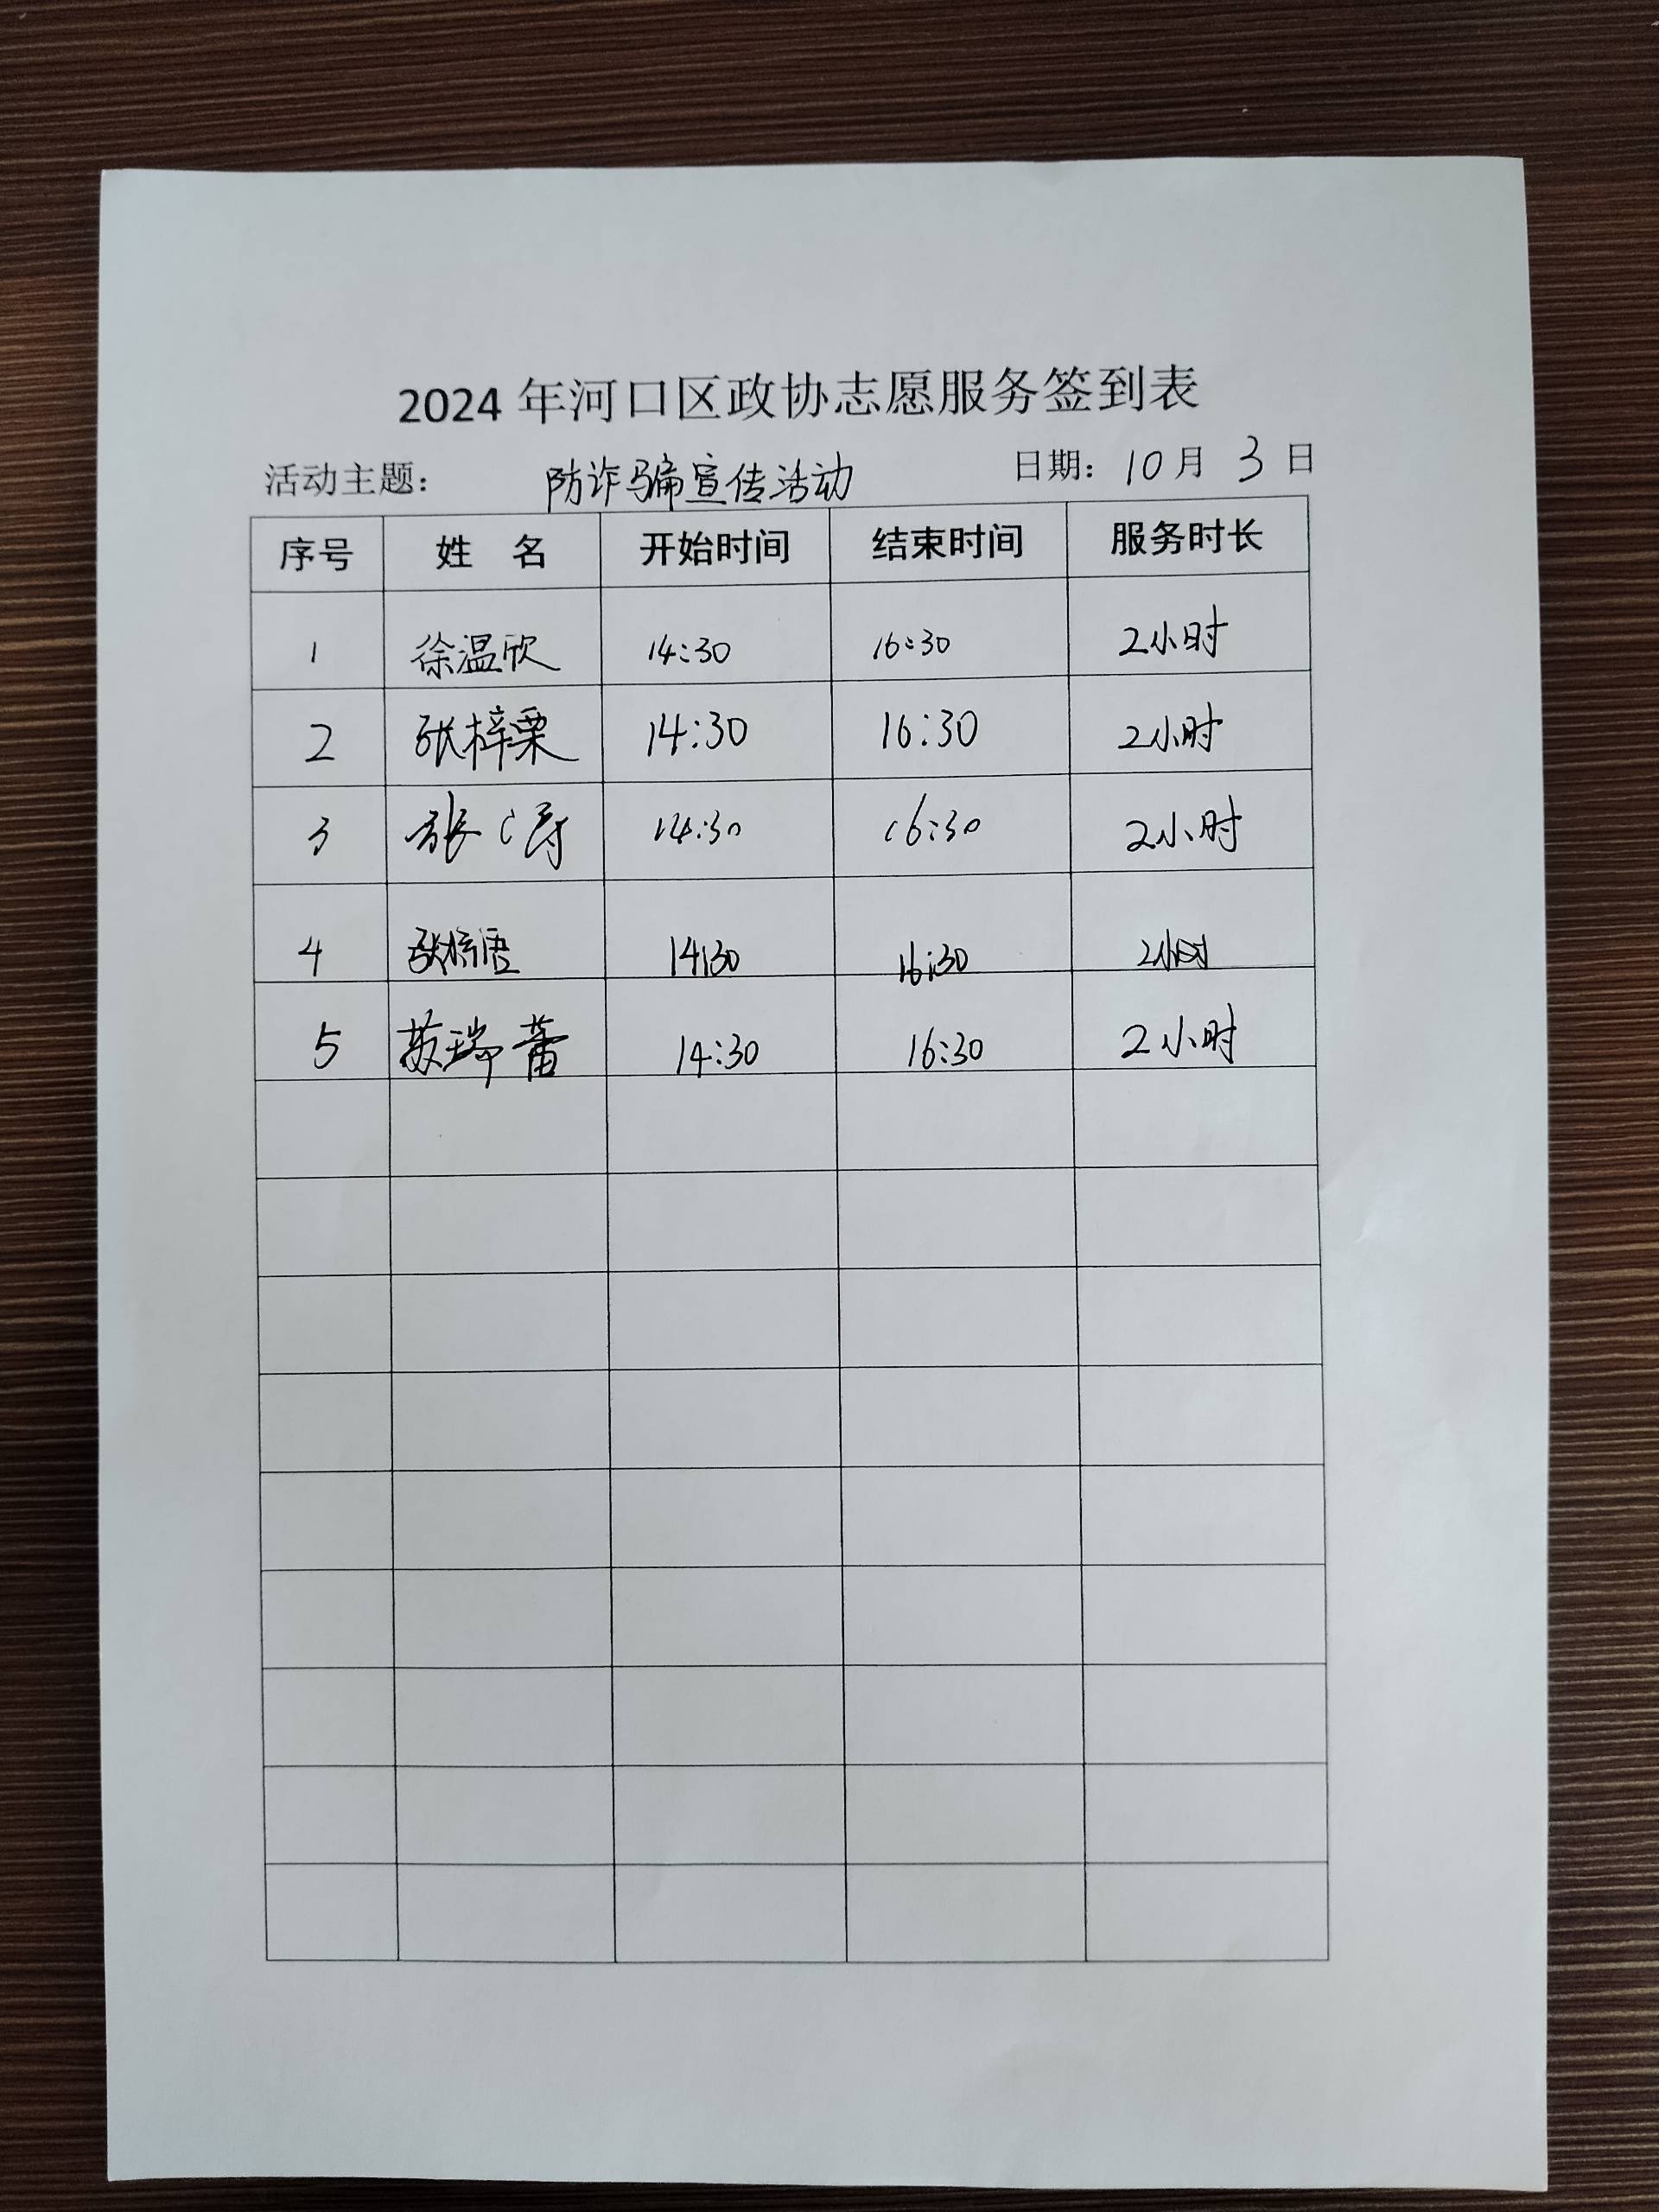 2024 年河口区政协志愿服务签到表
活动主题： 防诈骗宣传活动 日期：10月 3 日
序号 姓 名 开始时间 结束时间 服务时长
1 徐温欣 14:30 16:30 2小时
2 张梓栗 14:30 16:30 2小时
3 张涛 14:30 16:30 2小时
4 张梓语 14:30 16:30 2小时
5 瑞蕾 14:30 16:30 2小时